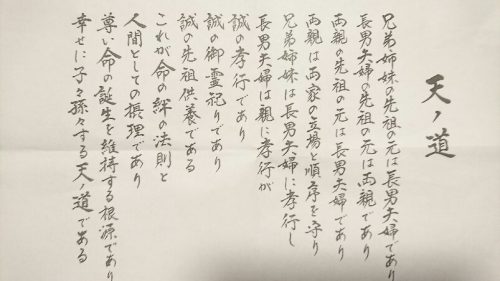 天ノ道
兄弟姉妹の先祖の元は長男夫婦であり
長男夫婦の先祖の元は両親であり
両親の先祖の元は長男夫婦であり
両親は両家の立場と順序を守り
兄弟姉妹は長男夫婦に孝行し
長男夫婦は親に孝行が
誠の孝行であり
誠の御霊祀りであり
誠の先祖供養である
これが命の絆の法則と
人間としての摂理であり
尊い命の誕生を維持する根源であり
幸せに子々孫々する天ノ道である